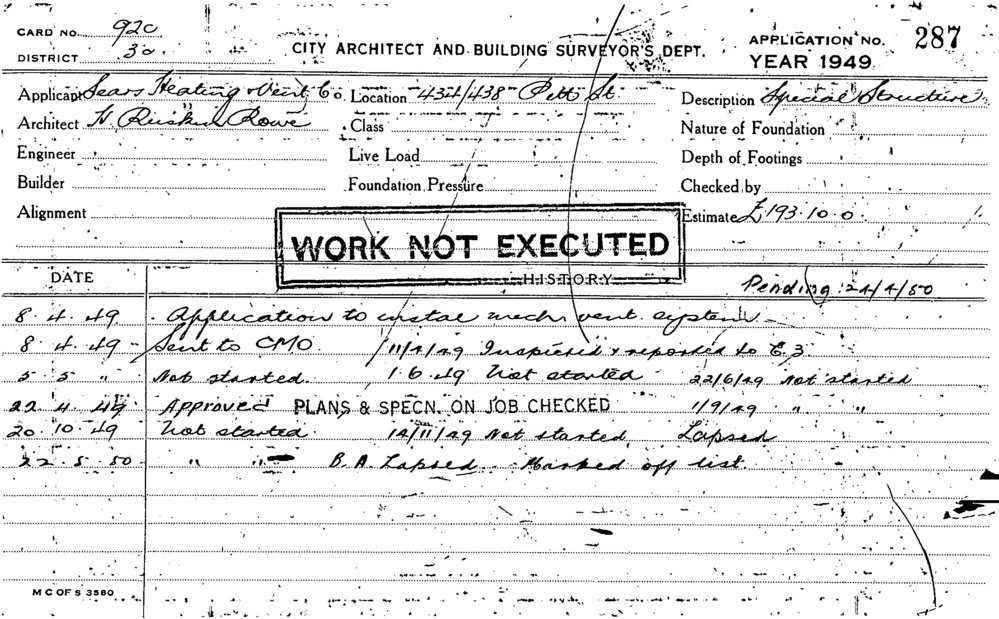 CARD NO. 920
DISTRICT 30
CITY ARCHITECT AND BUILDING SURVEYOR'S DEPT.
APPLICATION NO. 287
YEAR 1949
Applicant Sears Heating & Vent Co Location 434/438 Pitt St. Description Special Structure
Architect H. Ruskin Rowe Class Nature of Foundation
Engineer Live Load Depth of Footings
Builder Foundation Pressure Checked by
Alignment Estimate £193.10.0
WORK NOT EXECUTED
DATE HISTORY Pending 24/4/50
8.4.49 Application to instal mech. vent. system
8.4.49 Sent to CMO. 11/4/49 Inspected & reported to E.3.
5 5 " Not started. 1.6.49 Not started 22/6/49 Not started
22.4.49 Approved PLANS & SPECN. ON JOB CHECKED 1/9/49 " "
20.10.49 Not started. 14/11/49 Not started. Lapsed
22.5.50 " " B.A. Lapsed. Marked off list.
M C OF S 3560